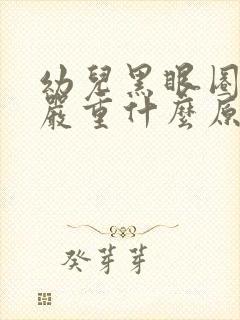 幼兒黑眼圈
嚴重什麼原
癸芽芽